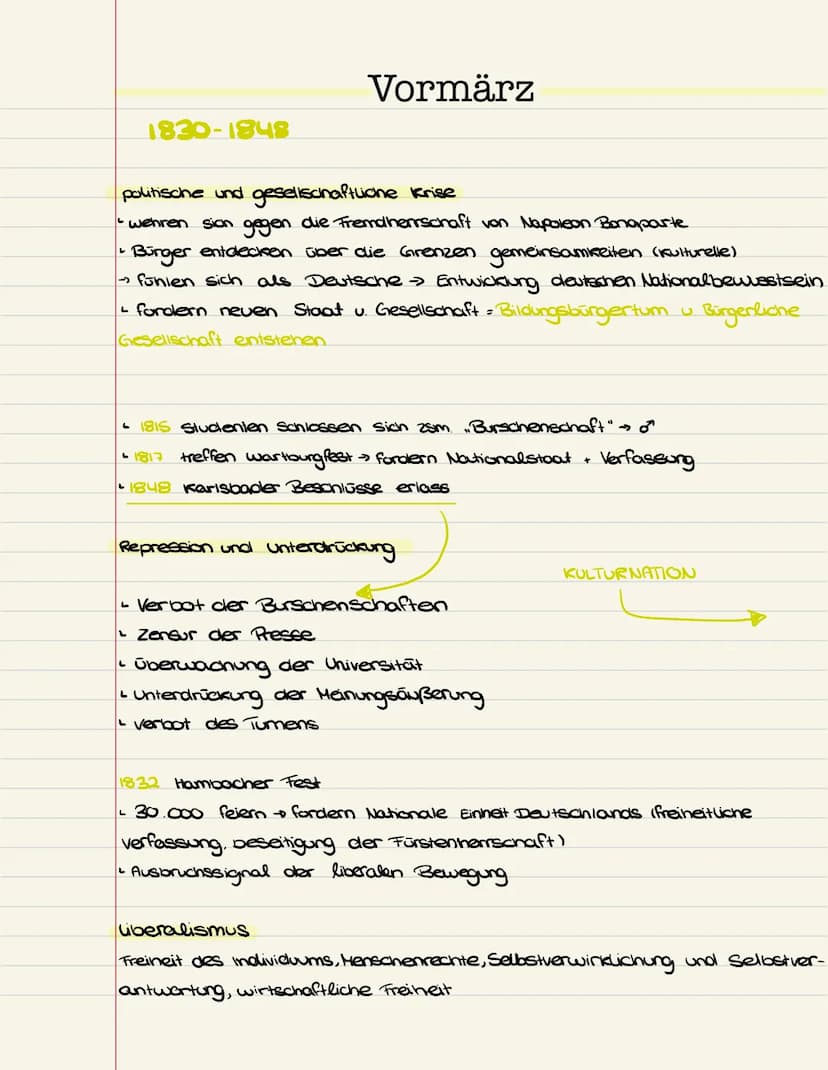 Vormärz
1830-1848
politische und gesellschaftliche Krise
wehren sich gegen die Fremdherrschaft von Napoleon Bonaparte
Bürger entdecken über die Grenzen gemeinsamkeiten (kulturelle)
→ fühlen sich als Deutsche → Entwicklung deutschen Nationalbewusstsein
fordern neuen Staat u. Gesellschaft = Bildungsbürgertum u. Bürgerliche
Gesellschaft entstehen
1815 Studenten schlossen sich zsm. „Burschenschaft" → ♂
1817 treffen wartburgfest → fordern Nationalstaat + Verfassung
1848 Karlsbader Beschlüsse erlass
Repression und Unterdrückung
KULTURNATION
Verbot der Burschenschaften
Zensur der Presse
Überwachung der Universität
Unterdrückung der Meinungsäußerung
verbot des Turnens
1832 Hambacher Fest
30.000 feiern → fordern Nationale Einheit Deutschlands (freiheitliche
verfassung, beseitigung der Fürstenherrschaft)
Ausbruchssignal der liberalen Bewegung
Liberalismus
Freiheit des Individuums, Menschenrechte, Selbstverwirklichung und Selbstver-
antwortung, wirtschaftliche Freiheit